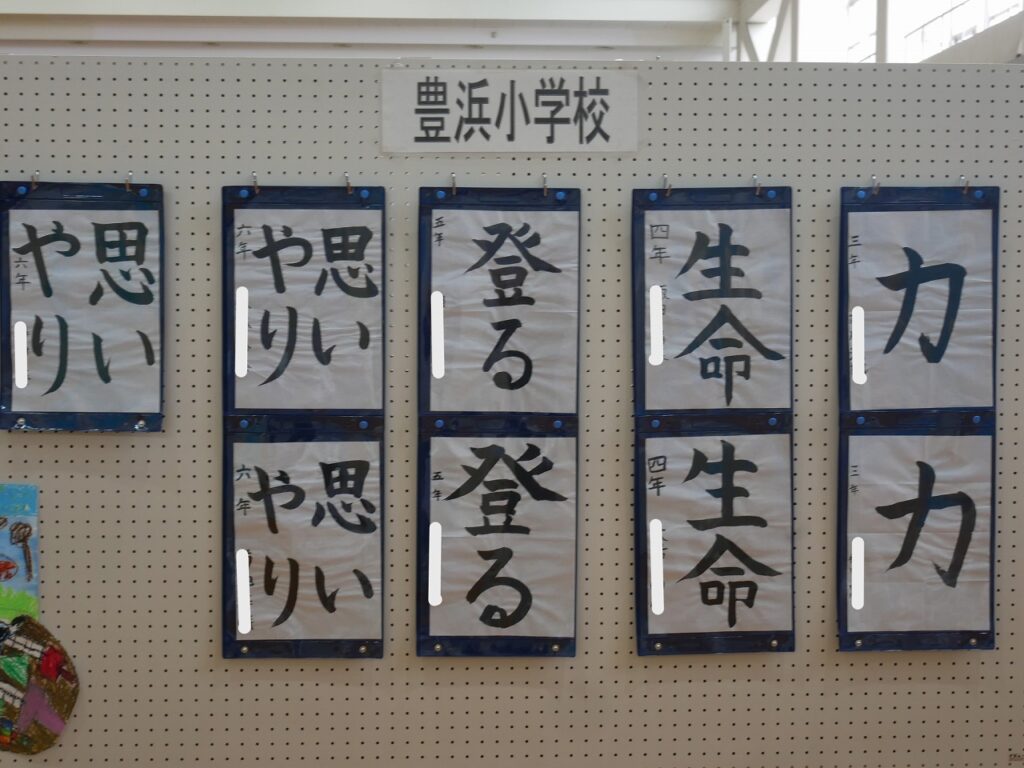 豊浜小学校
力
三年
力
三年
生命
四年
生命
四年
登る
五年
登る
五年
思い
やり
六年
思い
やり
六年
思い
やり
六年